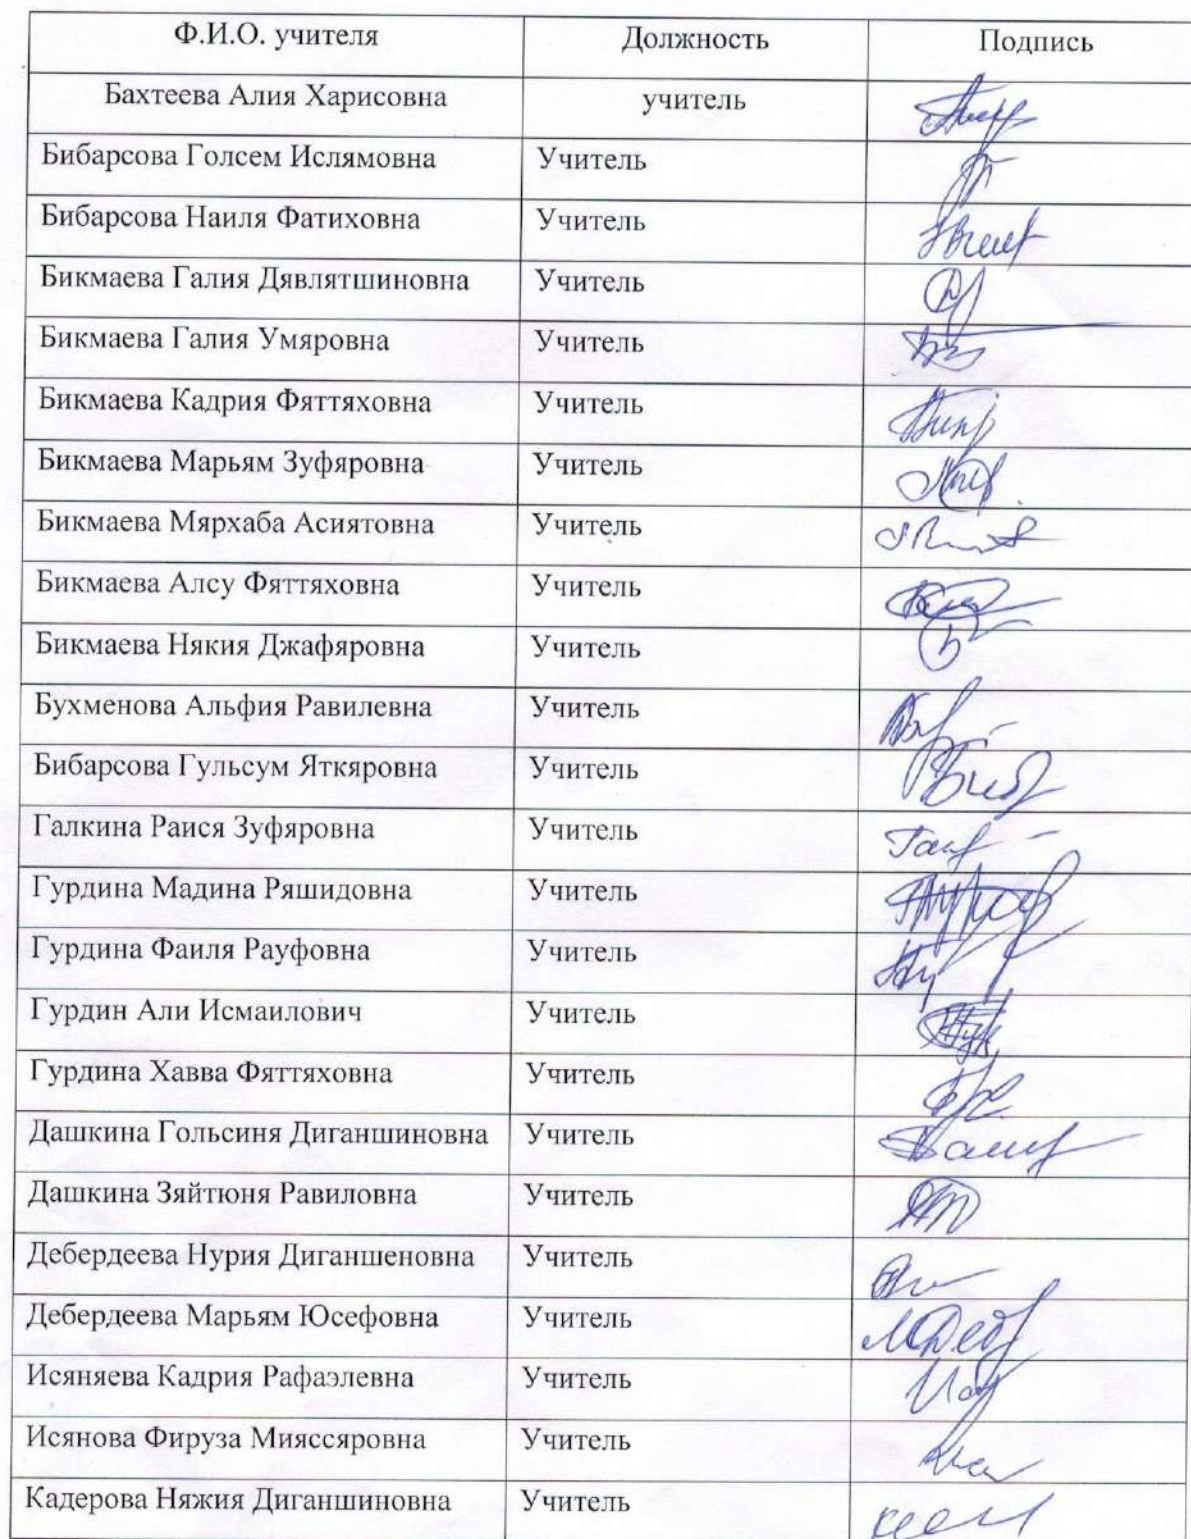 Ф.И.О. учителя Должность Подпись
Бахтеева Алия Харисовна учитель
Бибарсова Голсем Ислямовна Учитель
Бибарсова Наиля Фатиховна Учитель
Бикмаева Галия Дявлятшиновна Учитель
Бикмаева Галия Умяровна Учитель
Бикмаева Кадрия Фяттяховна Учитель
Бикмаева Марьям Зуфяровна Учитель
Бикмаева Мярхаба Асиятовна Учитель
Бикмаева Алсу Фяттяховна Учитель
Бикмаева Някия Джафяровна Учитель
Бухменова Альфия Равилевна Учитель
Бибарсова Гульсум Яткяровна Учитель
Галкина Раися Зуфяровна Учитель
Гурдина Мадина Ряшидовна Учитель
Гурдина Фаиля Рауфовна Учитель
Гурдин Али Исмаилович Учитель
Гурдина Хавва Фяттяховна Учитель
Дашкина Гольсиня Диганшиновна Учитель
Дашкина Зяйтюня Равиловна Учитель
Дебердеева Нурия Диганшеновна Учитель
Дебердеева Марьям Юсефовна Учитель
Исяняева Кадрия Рафаэлевна Учитель
Исянова Фируза Мияссяровна Учитель
Кадерова Няжия Диганшиновна Учитель